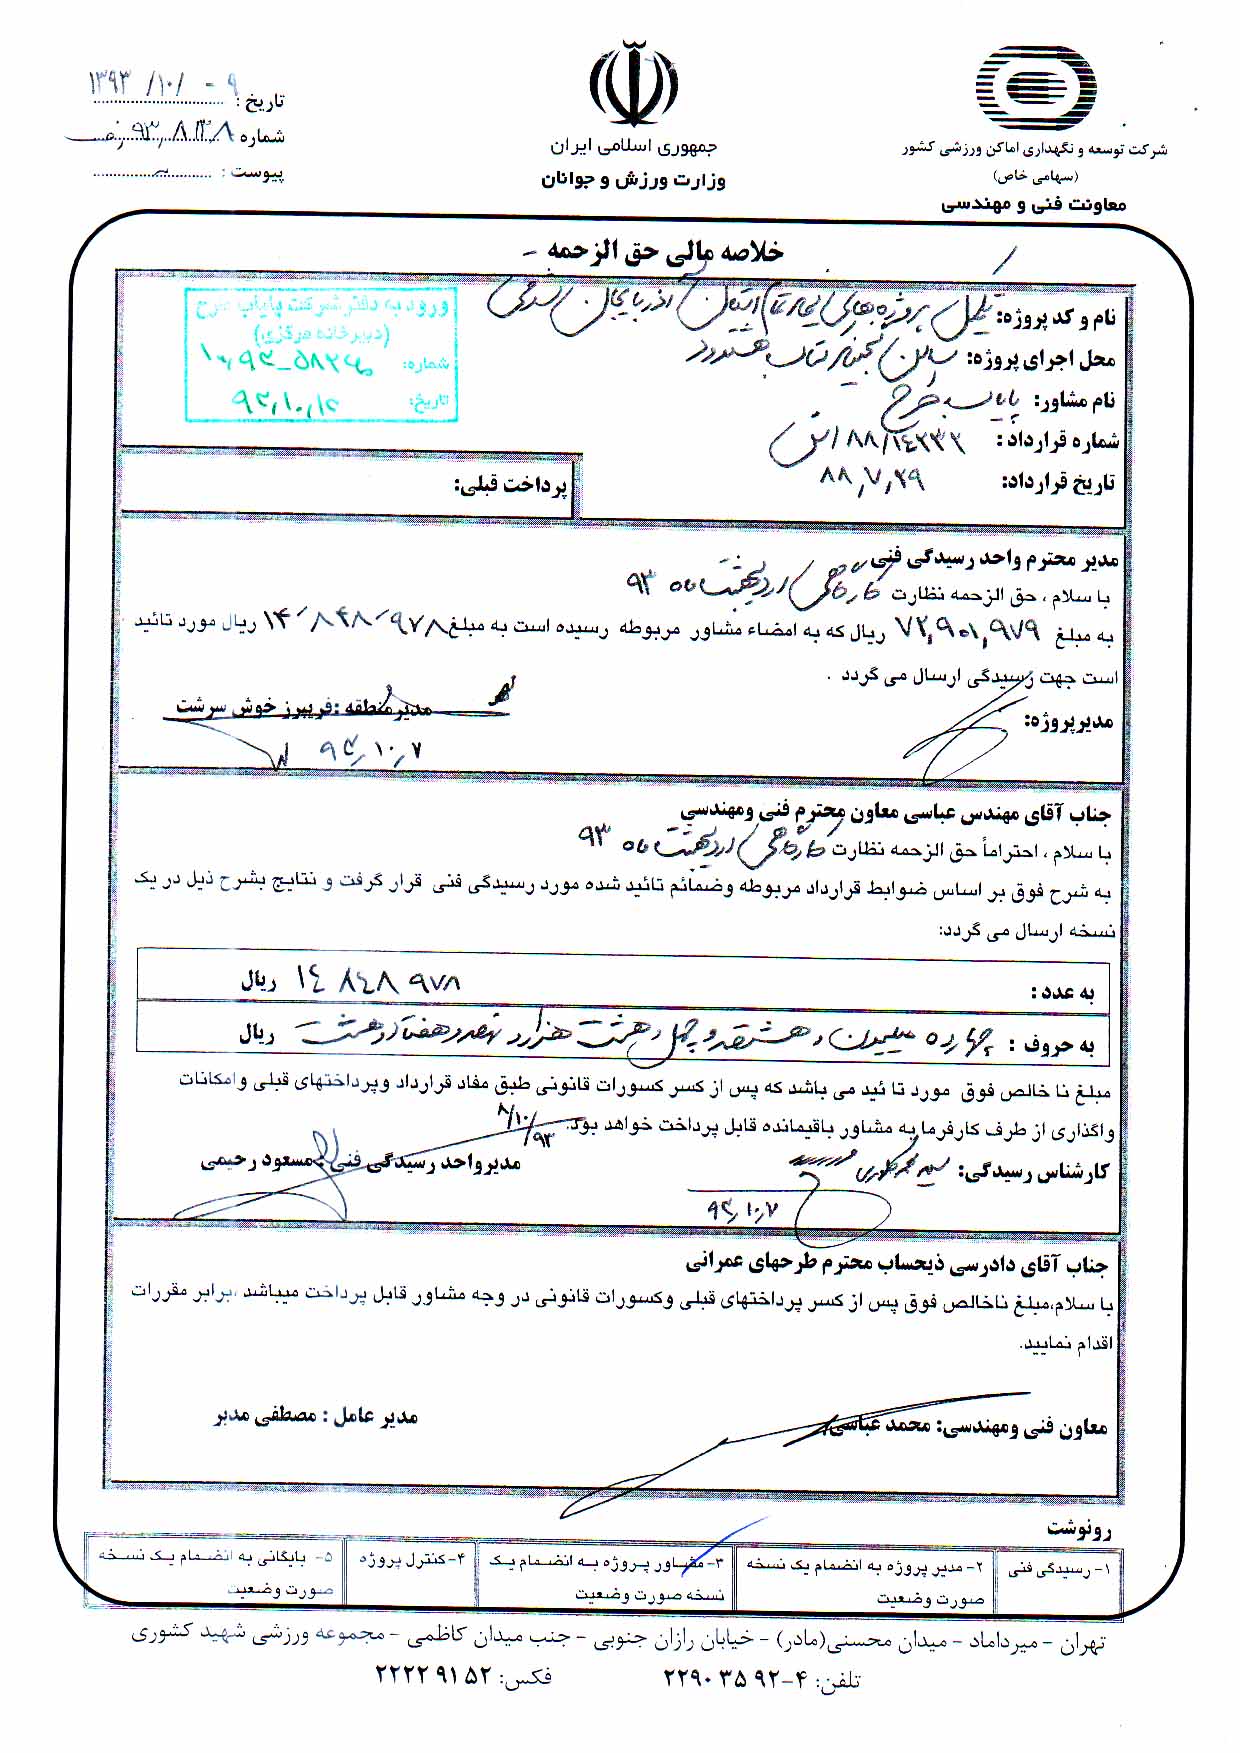 شرکت توسعه و نگهداری اماکن ورزشی کشور
(سهامی خاص)
معاونت فنی و مهندسی
جمهوری اسلامی ایران
وزارت ورزش و جوانان
تاریخ : ۱۳۹۳/۱۰/۰۹
شماره
پیوست :
خلاصه مالی حق الزحمه
نام و کد پروژه: تکمیل پروژه های نیمه تمام استان آذربایجان شرقی
محل اجرای پروژه: سالن
نام مشاور: پایاب طرح
شماره قرارداد :
تاریخ قرارداد: ۸۸,۷,۲۹
ورود به دفتر شرکت پایاب طرح
(دبیرخانه مرکزی)
شماره:
تاریخ:
پرداخت قبلی:
مدیر محترم واحد رسیدگی فنی
با سلام ، حق الزحمه نظارت کارگاهی اردیبهشت ماه ۹۳
به مبلغ ۷۲,۹۰۱,۹۷۹ ریال که به امضاء مشاور مربوطه رسیده است به مبلغ ۱۴٬۸۴۸٬۹۷۸ ریال مورد تائید
است جهت رسیدگی ارسال می گردد .
مدیرپروژه:
مدیرمنطقه :فریبرز خوش سرشت
۹۳,۱۰,۷
جناب آقای مهندس عباسی معاون محترم فنی ومهندسی
با سلام ، احتراماً حق الزحمه نظارت کارگاهی اردیبهشت ماه ۹۳
به شرح فوق بر اساس ضوابط قرارداد مربوطه وضمائم تائید شده مورد رسیدگی فنی قرار گرفت و نتایج بشرح ذیل در یک
نسخه ارسال می گردد:
به عدد : ۱۴ ۸۴۸ ۹۷۸ ریال
به حروف : چهارده میلیون و هشتصد و چهل و هشت هزار و نهصد و هفتاد و هشت ریال
مبلغ نا خالص فوق مورد تا ئید می باشد که پس از کسر کسورات قانونی طبق مفاد قرارداد وپرداختهای قبلی وامکانات
واگذاری از طرف کارفرما به مشاور باقیمانده قابل پرداخت خواهد بود.
۹۳/۱۰/۸
کارشناس رسیدگی:
مدیرواحد رسیدگی فنی : مسعود رحیمی
۹۳,۱۰,۷
جناب آقای دادرسی ذیحساب محترم طرحهای عمرانی
با سلام،مبلغ ناخالص فوق پس از کسر پرداختهای قبلی وکسورات قانونی در وجه مشاور قابل پرداخت میباشد ،برابر مقررات
اقدام نمایید.
معاون فنی ومهندسی: محمد عباسی
مدیر عامل : مصطفی مدبر
رونوشت
۱- رسیدگی فنی
۲- مدیر پروژه به انضمام یک نسخه
صورت وضعیت
۳- مشاور پروژه به انضمام یک
نسخه صورت وضعیت
۴-کنترل پروژه
۵- بایگانی به انضمام یک نسخه
صورت وضعیت
تهران - میرداماد - میدان محسنی(مادر) - خیابان رازان جنوبی - جنب میدان کاظمی - مجموعه ورزشی شهید کشوری
تلفن: ۴-۲۲۹۰۳۵۹۲ فکس: ۲۲۲۲۹۱۵۲